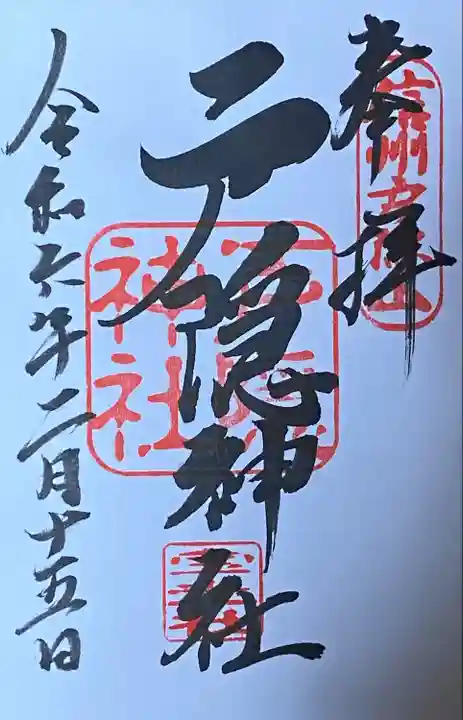 奉拝
戸隠神社
令和六年二月十五日
戸隠
神社